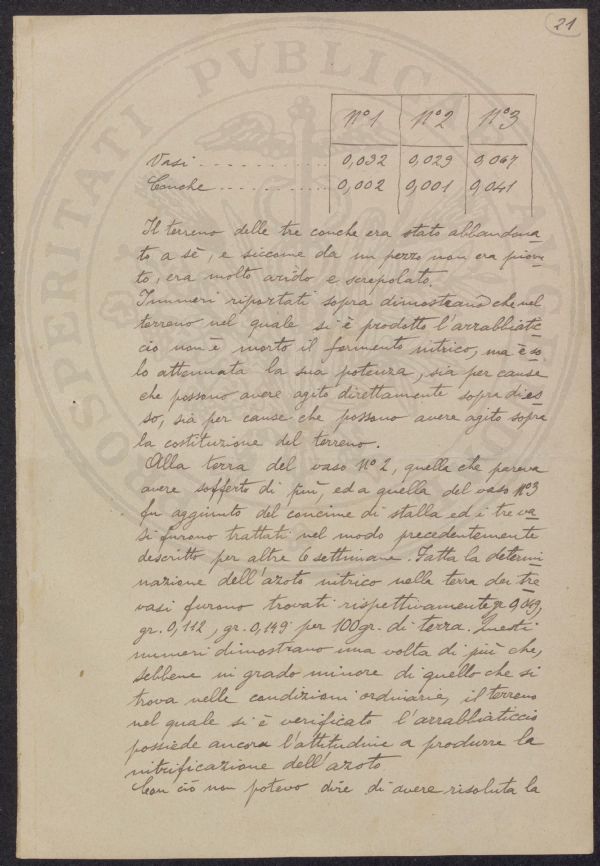 21
Nº1 Nº2 Nº3
Vasi . . . . . . . . . . . . 0,032 0,029 0,067
Conche . . . . . . . . . . . . 0,002 0,001 0,041
Il terreno delle tre conche era stato abbandona-
to a sè, e siccome da un pezzo non era piovu-
to, era molto arido e screpolato.
I numeri riportati sopra dimostrano che nel
terreno nel quale si è prodotto l'arrabbiatic-
cio non è morto il fermento nitrico, ma è so-
lo attenuata la sua potenza, sia per cause
che possono avere agito direttamente sopra di es-
so, sia per cause che possono avere agito sopra
la costituzione del terreno.
Alla terra del vaso Nº2, quella che pareva
avere sofferto di più, ed a quella del vaso Nº3
fu aggiunto del concime di stalla ed i tre va-
si furono trattati nel modo precedentemente
descritto per altre 6 settimane. Fatta la determi-
nazione dell'azoto nitrico nella terra dei tre
vasi furono trovati rispettivamente gr 0,049,
gr. 0,112, gr. 0,149 per 100gr. di terra. Questi
numeri dimostrano una volta di più che,
sebbene in grado minore di quello che si
trova nelle condizioni ordinarie, il terreno
nel quale si è verificato l'arrabbiaticcio
possiede ancora l'attitudine a produrre la
nitrificazione dell'azoto
Con ciò non potevo dire di avere risoluta la
PROSPERITATI PVBLICAE